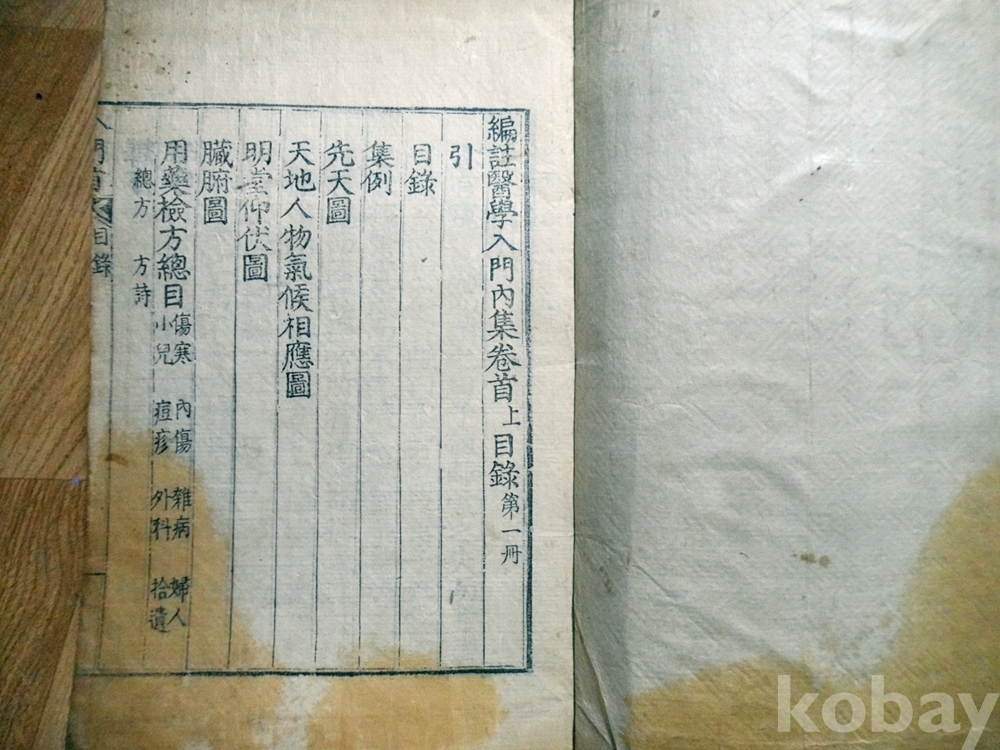 編註醫學入門內集卷首上目錄第一冊
引
目錄
集例
先天圖
天地人物氣候相應圖
明堂仰伏圖
臟腑圖
用藥檢方總目 傷寒 內傷 雜病 婦人
小兒 痘疹 外科 拾遺
總方 方詩
入門首 目錄
kobay